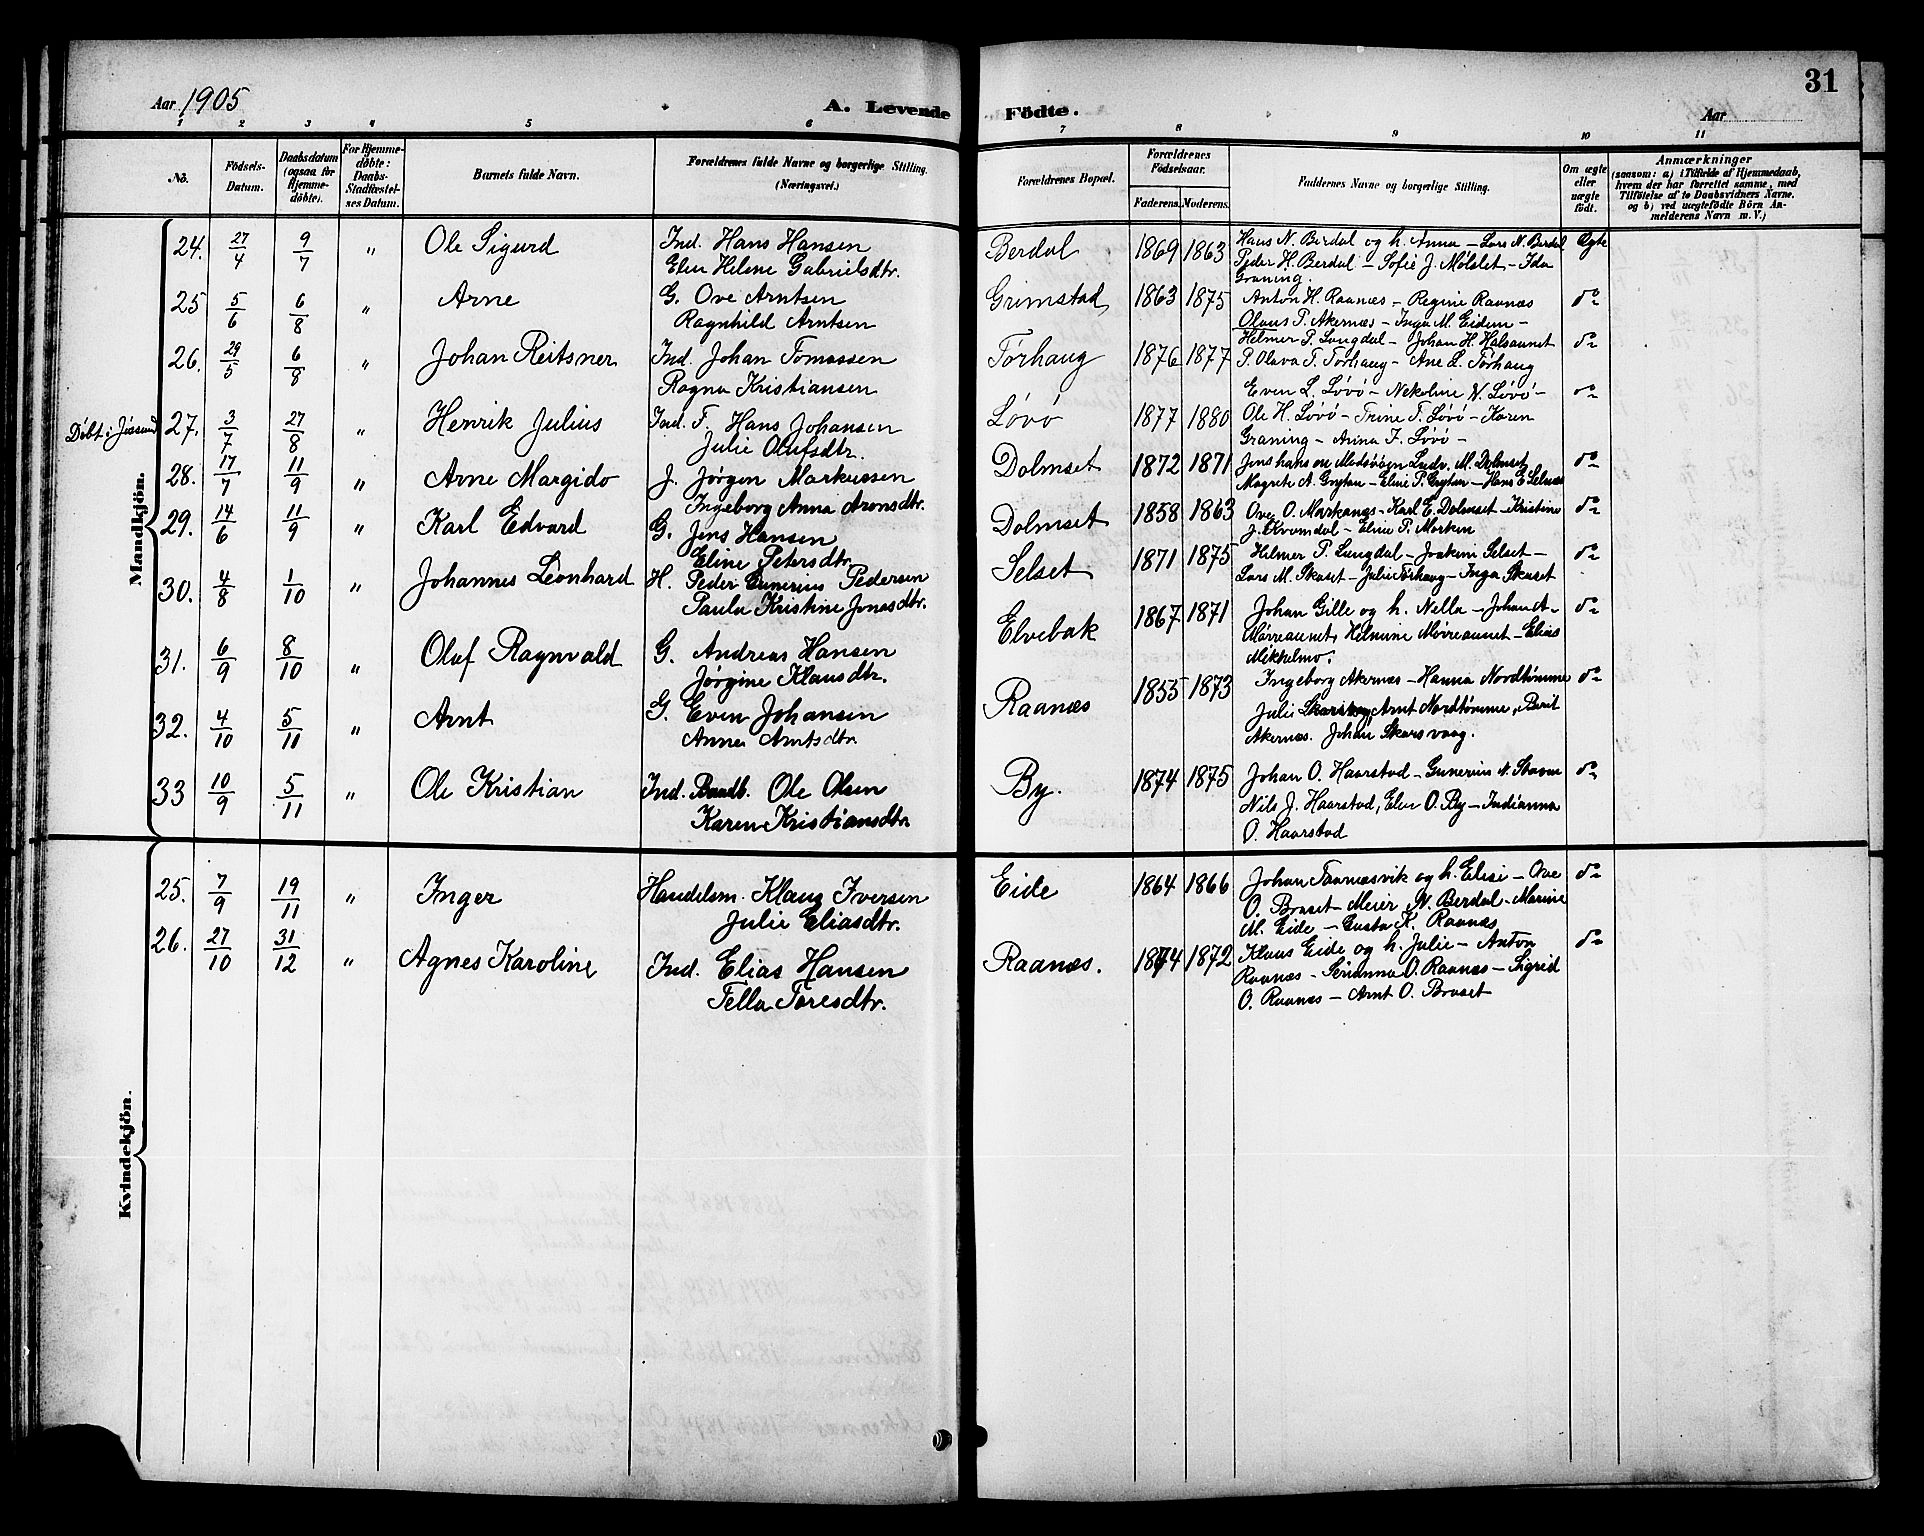 Aar 1905
A. Levende Födte.
Aar
31
1 2 3 4 5 6 7 8 9 10 11
No.
Födsels-Datum.
Daabsdatum (ogsaa for Hjemmedöbte).
For Hjemmedöbte: Daabs-Stadfæstelses Datum.
Barnets fulde Navn.
Forældrenes fulde Navne og borgerlige Stilling. (Næringsvei.)
Forældrenes Bopæl.
Forældrenes Födselsaar.
Faderens. Moderens.
Faddernes Navne og borgerlige Stilling.
Om ægte eller uægte födt.
Anmærkninger
(saasom: a) i Tilfælde af Hjemmedaab, hvem der har forrettet samme, med Tilföielse af to Daabsvidners Navne. og b) ved uægtefödte Börn Anmelderens Navn m. V.)
Mandkjön.
24. 27/4 9/7 " Ole Sigurd Ind. Hans Hansen Berdal 1869 1863 Hans N. Berdal og h. Anna - Lars N. Berdal Ægte
Elen Helene Gabrielsdtr. Peder H. Berdal - Sofie J. Mølslet - Ida
Graning
25 5/6 6/8 " Arne G. Ove Arntsen Grimstad 1863 1875 Anton H. Raanæs - Regine Raanæs do
Ragnhild Arntsen Olaus P. Akernæs - Inga M. Eidem -
26. 29/5 6/8 " Johan Reitsner Ind. Johan Tomassen Tørhaug 1876 1877 Helmer P. Langdal - Johan H. Halsaunet do
Ragna Kristiansen P. Olava T. Tørhaug - Ane L. Tørhaug
Døbt i Jøssund 27. 3/7 27/8 " Henrik Julius Ind. F. Hans Johansen Løvø 1877 1880 Even L. Løvø - Nekoline N. Løvø - do
Julie Olufsdtr. Ole H. Løvø - Trine T. Løvø - Karen
Graning - Anna F. Løvø -
28. 17/7 11/9 " Arne Margido J. Jørgen Markussen Dolmset 1872 1871 Ludv. M. Dolmset do
Ingeborg Anna Aronsdtr. Magrete A. Grytan - Eline P. Grytan - Hans E Selnæs
29. 14/6 11/9 " Karl Edvard G. Jens Hansen Dolmset 1858 1863 Ove O. Markanæs - Karl E. Dolmset - Kristine do
Eline Petersdtr J. Kvamdal - Eline P. Morken
30. 4/8 1/10 " Johannes Leonhard H. Peder Gunerius Pedersen Selset 1871 1875 Helmer P. Langdal - Joakim Selset - do
Paula Kristine Jonasdtr. Lars M. Skaset - Julie Tørhaug - Inga Skaset
31. 6/9 8/10 " Olaf Ragnvald G. Andreas Hansen Elvebak 1867 1871 Johan Gille og h. Nella - Johan A - do
Jørgine Klausdtr. Mørreaunet, Helmine Mørreaunet - Elias
Mikkelmo.
32. 4/10 5/11 " Arnt G. Even Johansen Raanæs 1855 1873 Ingeborg Akernæs - Hanna Nordtømme do
Anne Arntsdtr. Julie Arnt Nordtømme, Berit
Akernæs. Johan Skarsvaag.
33 10/9 5/11 " Ole Kristian Ind. Baadb. Ole Olsen By. 1874 1875 Johan O. Haarstad - Gunerius N. Stavem do
Karen Kristiansdtr Nils J. Haarstad, Elen O. By - Indianna
O. Haarstad
Kvindekjön.
25. 7/9 19/11 " Inger Handelsm. Klaus Iversen Eide 1864 1866 Johan Taanæsvik og h. Elisi - Ove do
Julie Eliasdtr. O. Braset - Meier N. Berdal - Marine
M. Eide - Gusta K. Raanæs
26. 27/10 31/12 " Agnes Karoline Ind. Elias Hansen Raanæs. 1874 1872 Klaus Eide og h. Julie - Anton do
Tella Toresdtr. Raanæs - Serianna O. Raanæs - Sigrid
O. Raanæs - Arnt O. Braset